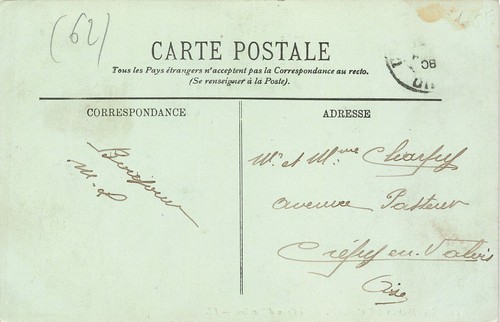 (62)
CARTE POSTALE
Tous les Pays étrangers n'acceptent pas la Correspondance au recto.
(Se renseigner à la Poste).
CORRESPONDANCE
ADRESSE
Mr et Mme
avenue Pasteur
Crépy en Valois
Oise